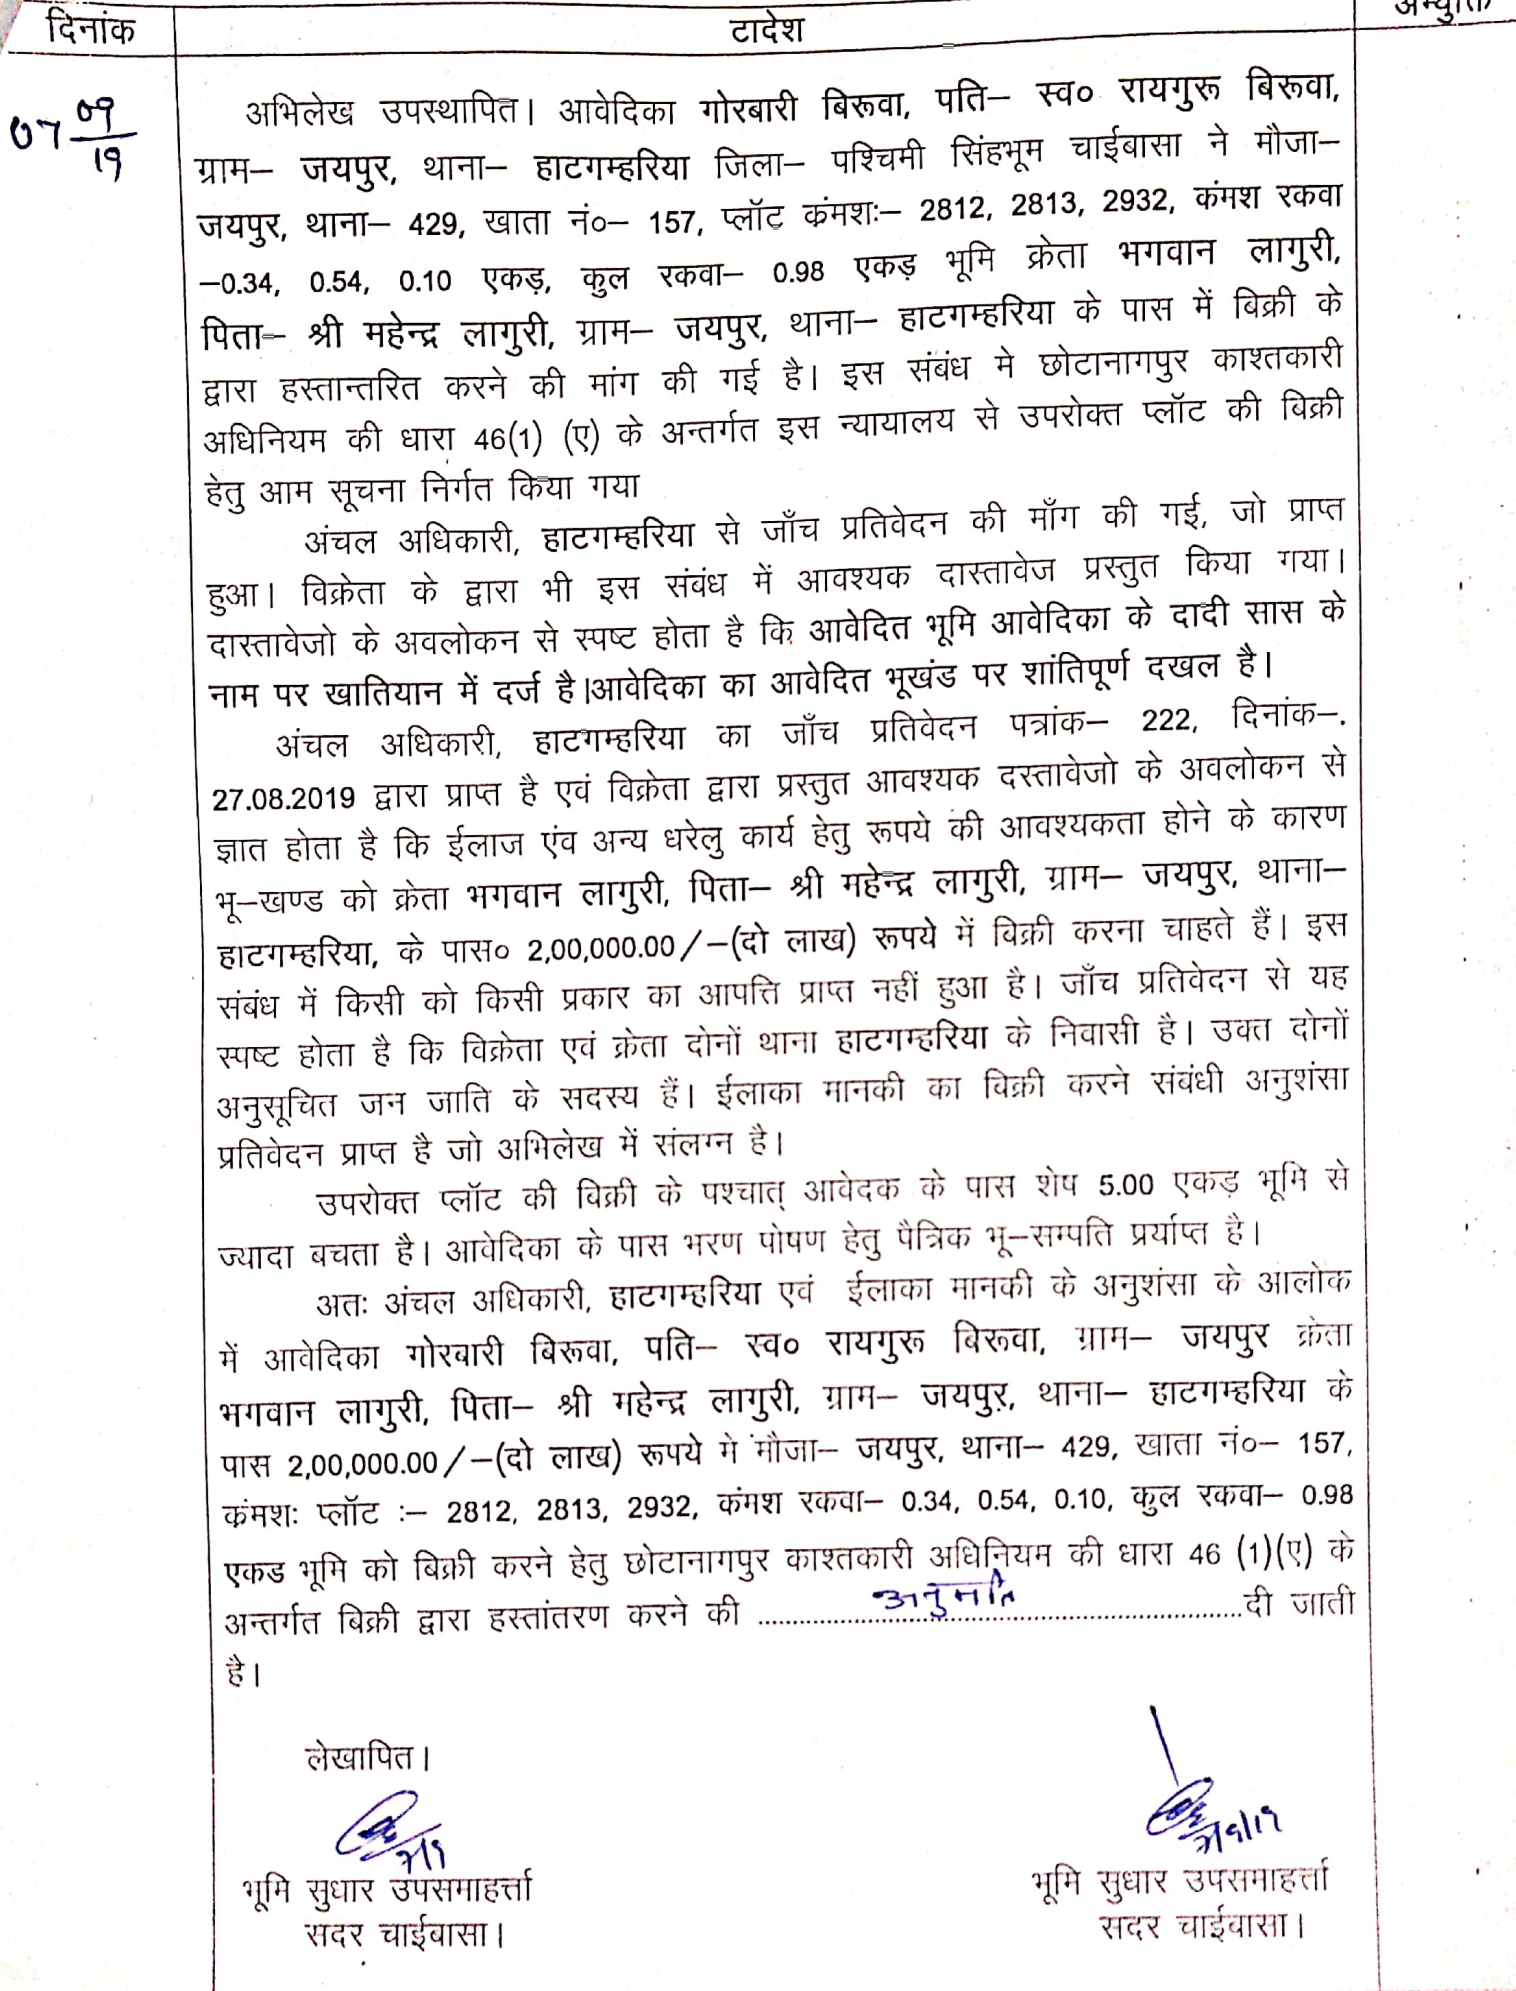 दिनांक
टादेश
अभ्युक्ति
07 09/19
अभिलेख उपस्थापित। आवेदिका गोरबारी बिरूवा, पति– स्व० रायगुरू बिरूवा,
ग्राम– जयपुर, थाना– हाटगम्हरिया जिला– पश्चिमी सिंहभूम चाईबासा ने मौजा–
जयपुर, थाना– 429, खाता नं०– 157, प्लॉट कंमशः– 2812, 2813, 2932, कंमश रकवा
–0.34, 0.54, 0.10 एकड़, कुल रकवा– 0.98 एकड़ भूमि क्रेता भगवान लागुरी,
पिता– श्री महेन्द्र लागुरी, ग्राम– जयपुर, थाना– हाटगम्हरिया के पास में बिक्री के
द्वारा हस्तान्तरित करने की मांग की गई है। इस संबंध मे छोटानागपुर काश्तकारी
अधिनियम की धारा 46(1) (ए) के अन्तर्गत इस न्यायालय से उपरोक्त प्लॉट की बिक्री
हेतु आम सूचना निर्गत किया गया
अंचल अधिकारी, हाटगम्हरिया से जाँच प्रतिवेदन की माँग की गई, जो प्राप्त
हुआ। विक्रेता के द्वारा भी इस संबंध में आवश्यक दास्तावेज प्रस्तुत किया गया।
दास्तावेजो के अवलोकन से स्पष्ट होता है कि आवेदित भूमि आवेदिका के दादी सास के
नाम पर खातियान में दर्ज है।आवेदिका का आवेदित भूखंड पर शांतिपूर्ण दखल है।
अंचल अधिकारी, हाटगम्हरिया का जाँच प्रतिवेदन पत्रांक– 222, दिनांक–.
27.08.2019 द्वारा प्राप्त है एवं विक्रेता द्वारा प्रस्तुत आवश्यक दस्तावेजो के अवलोकन से
ज्ञात होता है कि ईलाज एंव अन्य धरेलु कार्य हेतु रूपये की आवश्यकता होने के कारण
भू–खण्ड को क्रेता भगवान लागुरी, पिता– श्री महेन्द्र लागुरी, ग्राम– जयपुर, थाना–
हाटगम्हरिया, के पास० 2,00,000.00/–(दो लाख) रूपये में बिक्री करना चाहते हैं। इस
संबंध में किसी को किसी प्रकार का आपत्ति प्राप्त नहीं हुआ है। जाँच प्रतिवेदन से यह
स्पष्ट होता है कि विक्रेता एवं क्रेता दोनों थाना हाटगम्हरिया के निवासी है। उक्त दोनों
अनुसूचित जन जाति के सदस्य हैं। ईलाका मानकी का बिक्री करने संबंधी अनुशंसा
प्रतिवेदन प्राप्त है जो अभिलेख में संलग्न है।
उपरोक्त प्लॉट की बिक्री के पश्चात् आवेदक के पास शेष 5.00 एकड़ भूमि से
ज्यादा बचता है। आवेदिका के पास भरण पोषण हेतु पैत्रिक भू–सम्पति प्रर्याप्त है।
अतः अंचल अधिकारी, हाटगम्हरिया एवं ईलाका मानकी के अनुशंसा के आलोक
में आवेदिका गोरबारी बिरूवा, पति– स्व० रायगुरू बिरूवा, ग्राम– जयपुर क्रेता
भगवान लागुरी, पिता– श्री महेन्द्र लागुरी, ग्राम– जयपुर, थाना– हाटगम्हरिया के
पास 2,00,000.00/–(दो लाख) रूपये मे मौजा– जयपुर, थाना– 429, खाता नं०– 157,
कंमशः प्लॉट :– 2812, 2813, 2932, कंमश रकवा– 0.34, 0.54, 0.10, कुल रकवा– 0.98
एकड भूमि को बिक्री करने हेतु छोटानागपुर काश्तकारी अधिनियम की धारा 46 (1)(ए) के
अन्तर्गत बिक्री द्वारा हस्तांतरण करने की ......अनुमति......दी जाती
है।
लेखापित।
7/9
7/9/19
भूमि सुधार उपसमाहर्त्ता
सदर चाईबासा।
भूमि सुधार उपसमाहर्त्ता
सदर चाईबासा।